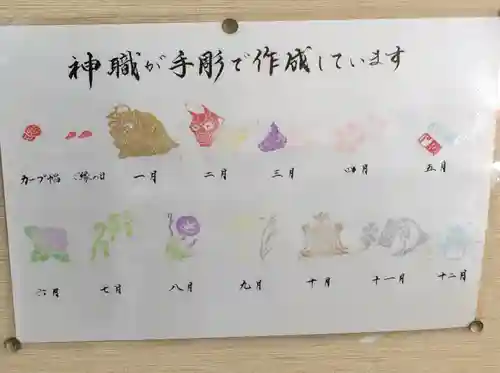 神職が手彫で作成しています
カープ帽 ご縁の日 一月 二月 三月 四月 五月
六月 七月 八月 九月 十月 十一月 十二月